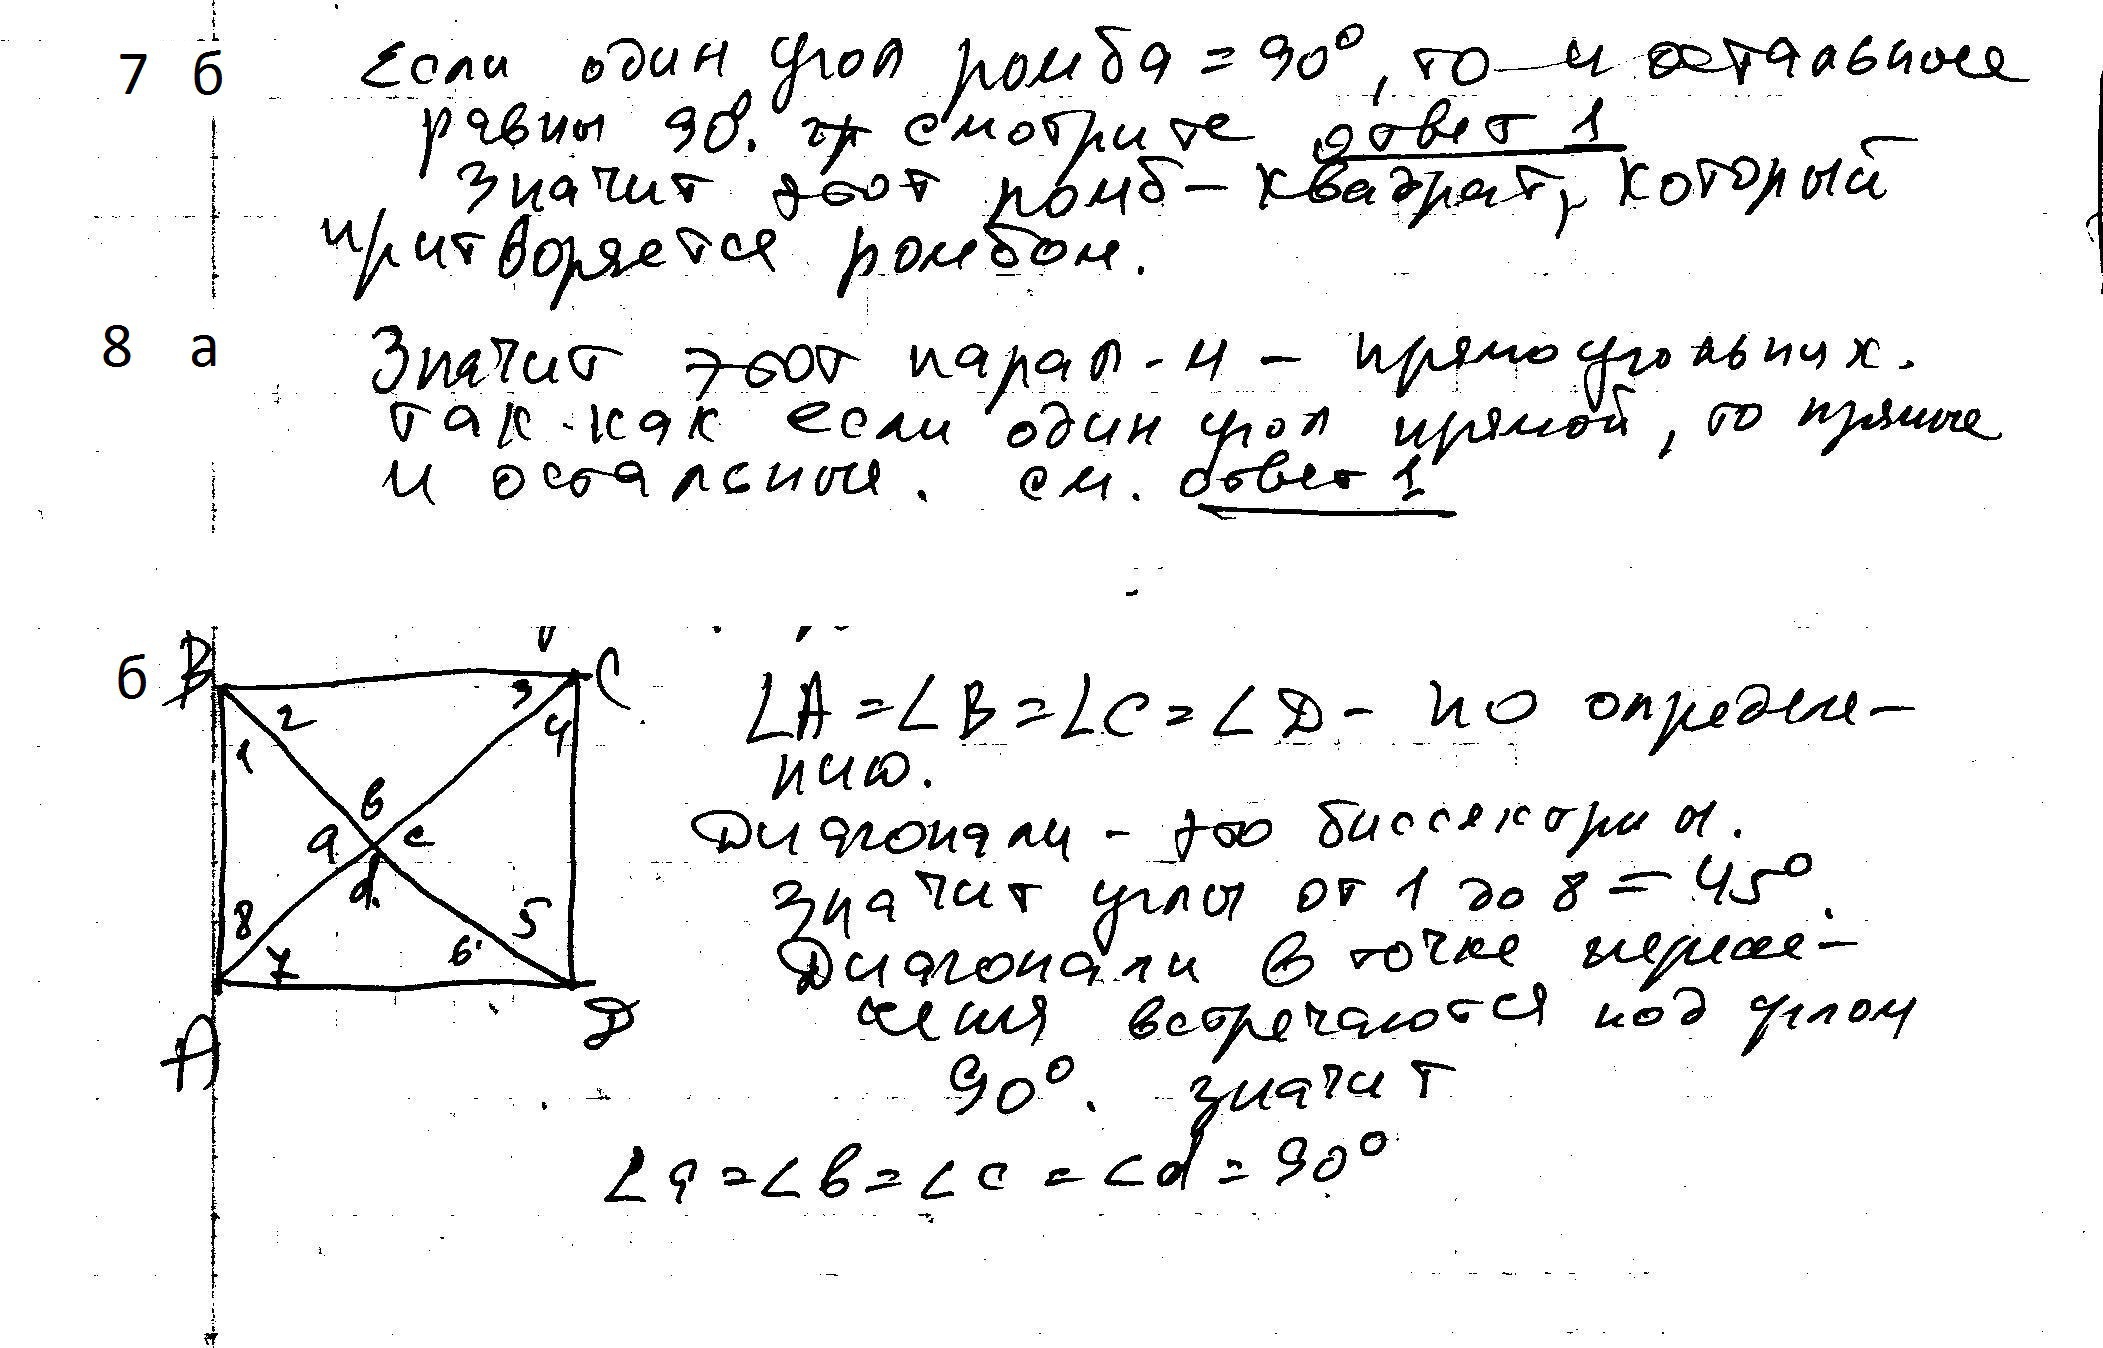 7 б Если один угол ромба = 90°, то и остальные
равны 90°. смотрите ответ 1
Значит этот ромб - квадрат, который
притворяется ромбом.
8 а Значит этот парал-м - прямоугольник.
так как если один угол прямой, то прямые
и остальные. см. ответ 1
б B C
∠A = ∠B = ∠C = ∠D - по определе-
нию.
3
2
4
1
в
Диагонали - это биссектрисы.
a c
d
Значит углы от 1 до 8 = 45°.
8 5
Диагонали в точке пересе-
6
7
чения встречаются под углом
A D
90°. значит
∠a = ∠b = ∠c = ∠d = 90°